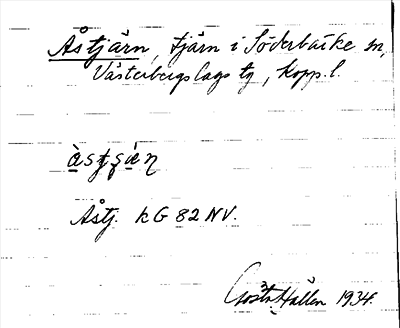 Åstjärn, tjärn i Söderbärke sn,
Västerbergslags tg, Kopp. l.
Åstj. kG 82 NV.
Gösta Hallén 1934.